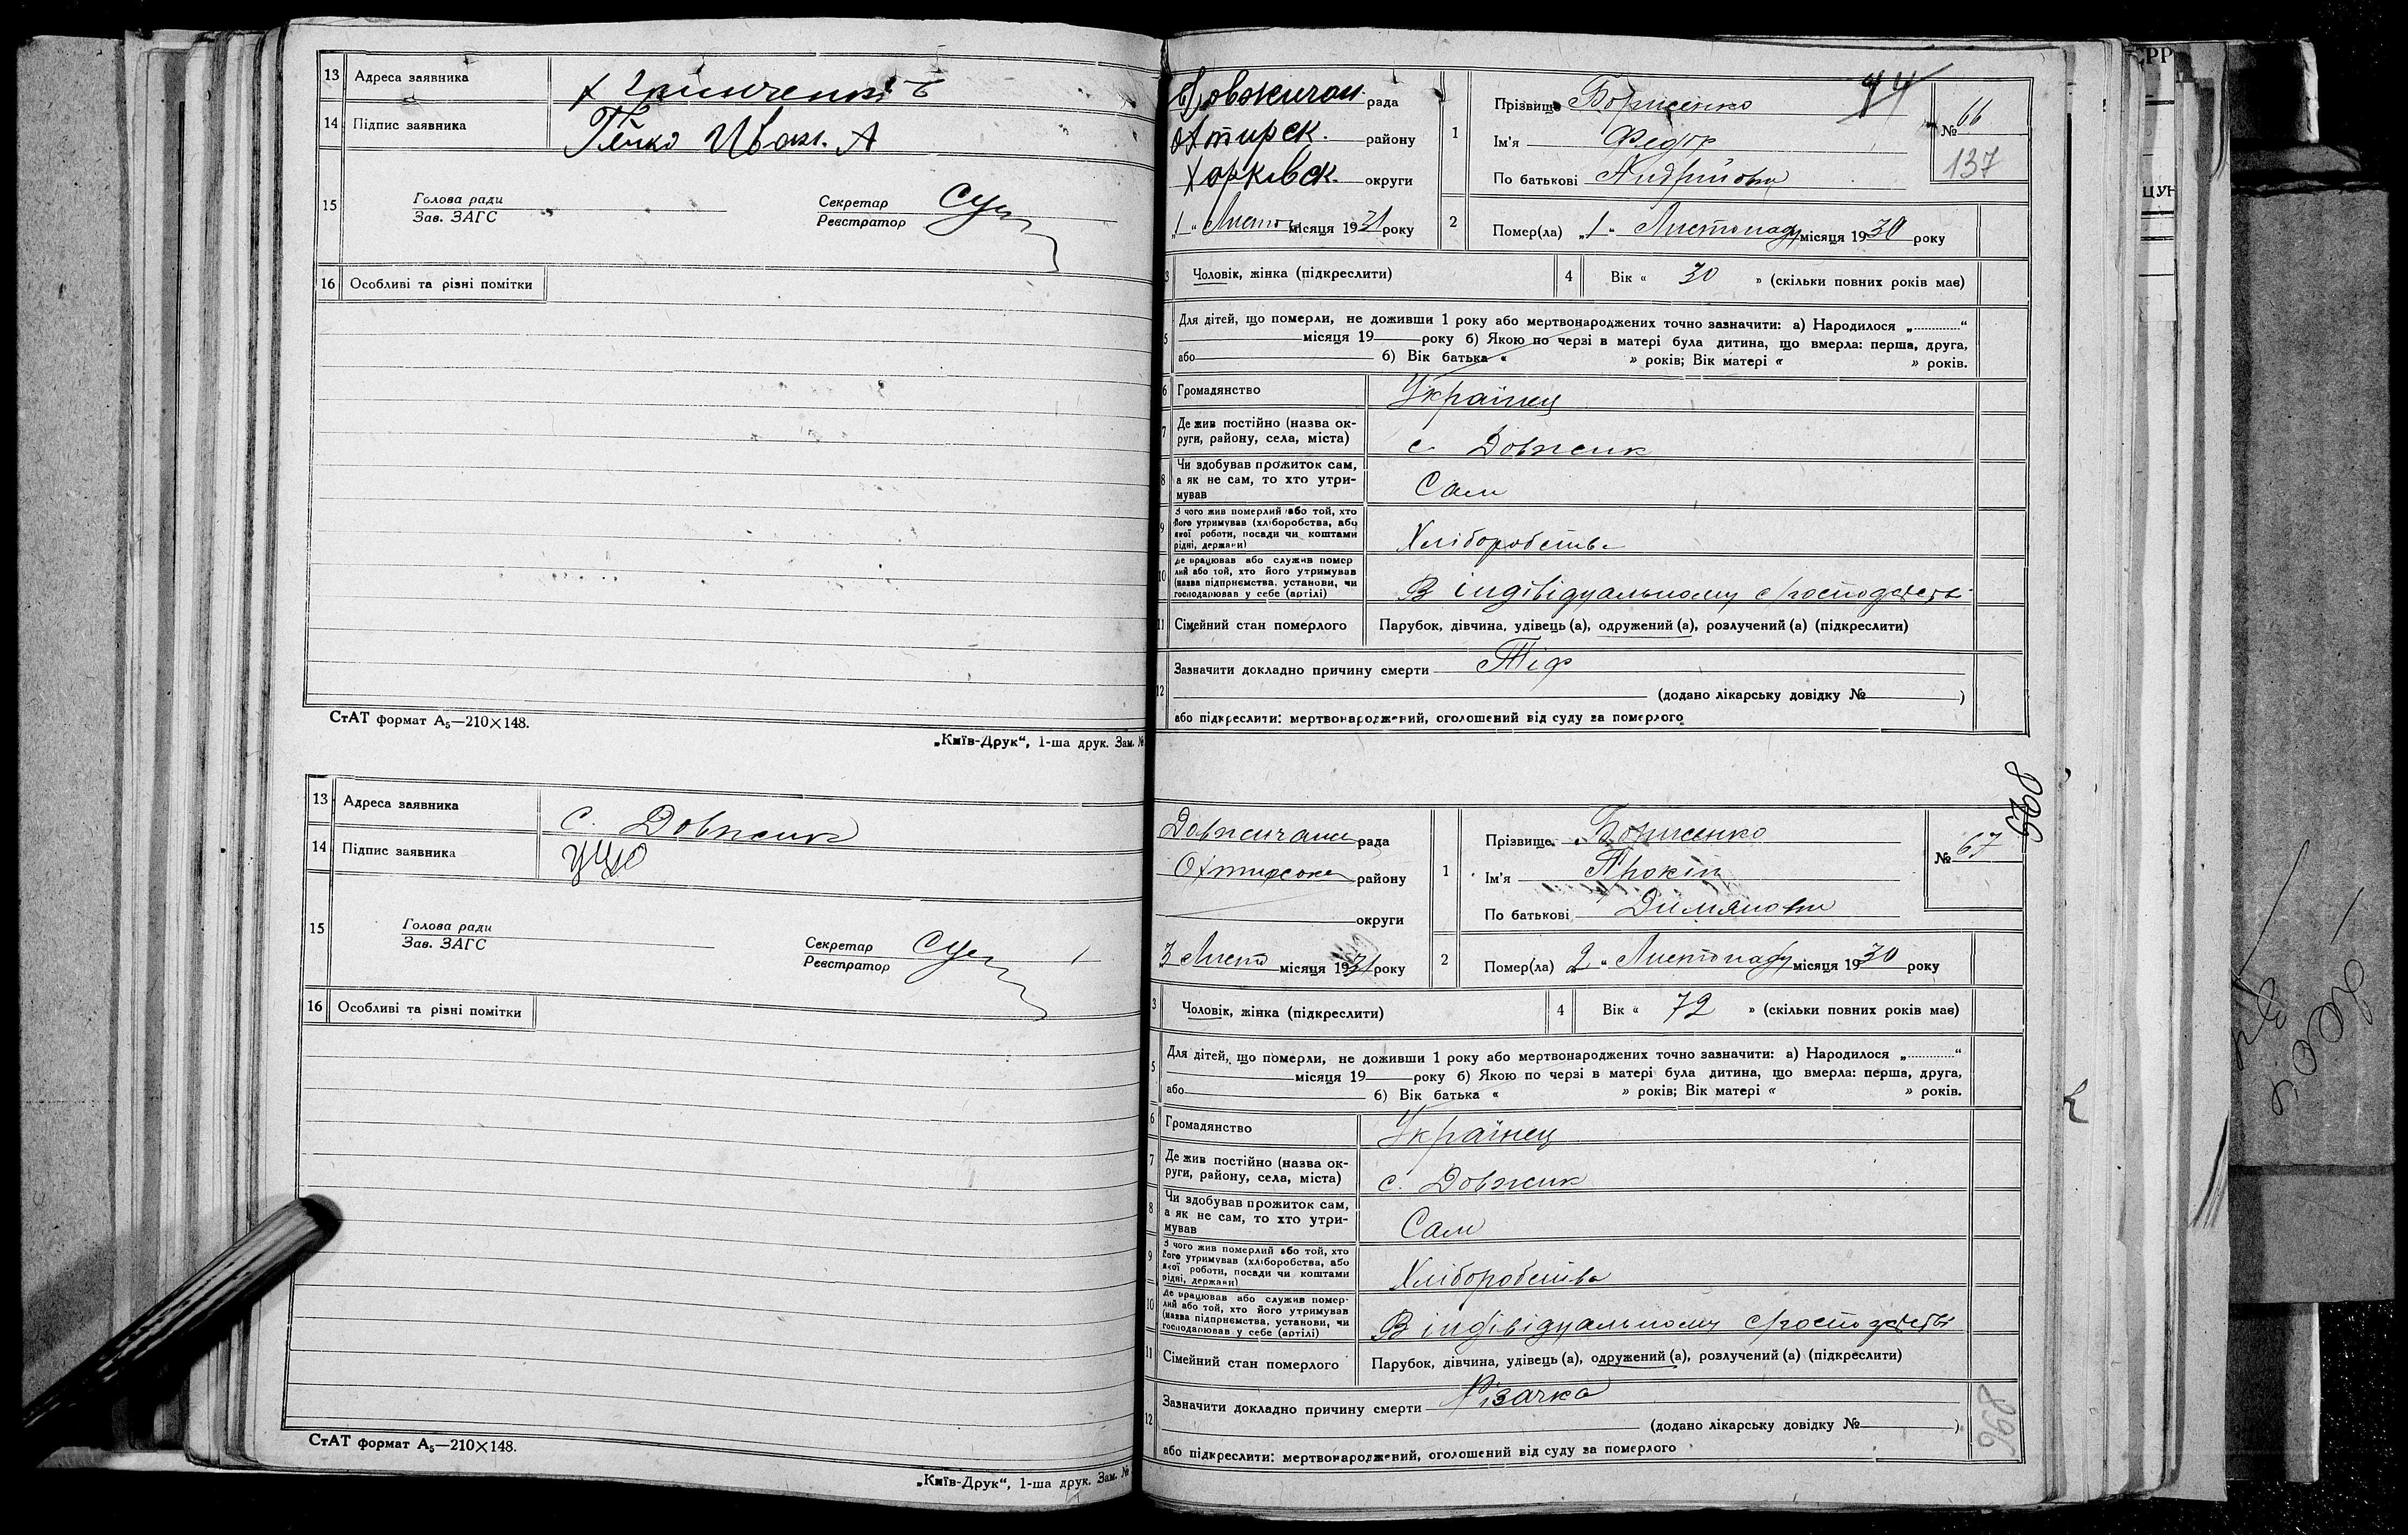 13 Адреса заявника
14 Підпис заявника
Гечко Иван. А
15 Голова ради
Зав. ЗАГС
Секретар
Реєстратор
16 Особливі та різні помітки
СтАТ формат А₅—210×148.
„Київ-Друк“, 1-ша друк. Зам. №
13 Адреса заявника с. Довжик
14 Підпис заявника
15 Голова ради
Зав. ЗАГС
Секретар
Реєстратор
16 Особливі та різні помітки
СтАТ формат А₅—210×148.
„Київ-Друк“, 1-ша друк. Зам. №
Довжичан. рада
Охтирск. району
Харківск. округи
„1“ Листо місяця 1931 року
44
1 Прізвище Борисенко
Ім'я Федір
По батькові Андрійович
№ 66
137
2 Помер(ла) „1“ Листопаду місяця 1930 року
3 Чоловік, жінка (підкреслити)
4 Вік « 30 » (скільки повних років має)
5 Для дітей, що померли, не доживши 1 року або мертвонароджених точно зазначити: а) Народилося „............“
місяця 19 року б) Якою по черзі в матері була дитина, що вмерла: перша, друга,
або б) Вік батька « » років; Вік матері « » років.
6 Громадянство Українец
7 Де жив постійно (назва ок-
руги, району, села, міста) с. Довжик
8 Чи здобував прожиток сам,
а як не сам, то хто утри-
мував Сам
9 З чого жив померлий або той, хто
його утримував (хліборобства, або
якої роботи, посади чи коштами
рідні, держави) Хліборобства
10 Де працював або служив помер
лий або той, хто його утримував
(назва підприємства, установи, чи
господарював у себе (артілі) В індівідуальному
11 Сімейний стан померлого Парубок, дівчина, удівець (а), одружений (а), розлучений (а) (підкреслити)
12 Зазначити докладно причину смерти Тіф
(додано лікарську довідку № )
або підкреслити: мертвонароджений, оголошений від суду за померлого
895
Довжичани рада
Охтирсоке району
округи
3 Листо місяця 1931 року
1 Прізвище Борисенко
Ім'я Прокіп
По батькові Димянович
№ 67
2 Помер(ла) 2 “ Листопаду місяця 1930 року
3 Чоловік, жінка (підкреслити)
4 Вік « 72 » (скільки повних років має)
5 Для дітей, що померли, не доживши 1 року або мертвонароджених точно зазначити: а) Народилося „............“
місяця 19 року б) Якою по черзі в матері була дитина, що вмерла: перша, друга,
або б) Вік батька « » років; Вік матері « » років.
6 Громадянство Українец
7 Де жив постійно (назва ок-
руги, району, села, міста) с. Довжик
8 Чи здобував прожиток сам,
а як не сам, то хто утри-
мував Сам
9 З чого жив померлий або той, хто
його утримував (хліборобства, або
якої роботи, посади чи коштами
рідні, держави) Хліборобства
10 Де працював або служив помер-
лий або той, хто його утримував
(назва підприємства, установи, чи
господарював у себе (артілі) В індівідуальному
11 Сімейний стан померлого Парубок, дівчина, удівець (а), одружений (а), розлучений (а) (підкреслити)
12 Зазначити докладно причину смерти Різачка
(додано лікарську довідку № )
або підкреслити: мертвонароджений, оголошений від суду за померлого
896